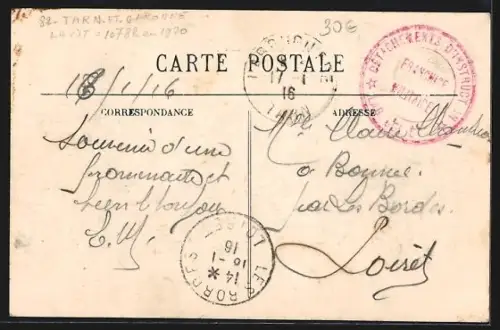 82 - TARN-ET-GARONNE
30€
CARTE POSTALE
17 - 1
16
DÉTACHEMENTS D'INSTRUCTION
FRANCHISE
MILITAIRE
1/16
CORRESPONDANCE
ADRESSE
Souvenir d'une
promenade et
bien bonjour
E.M.
Mlle
à Bonnée
par Les Bordes
Loiret
LES BORDES
LOIRET
14 *
16 - 1
16